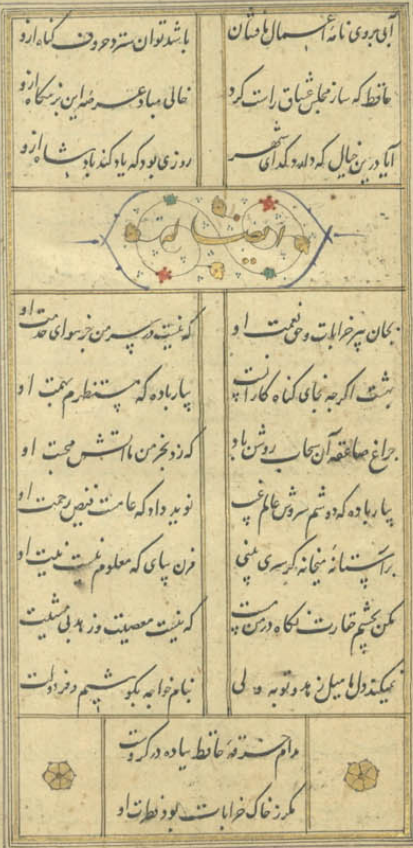 آبی بروی نامهٔ اعمال ما فشان باشد توان سترد حروف گناه ازو
حافظ که ساز مجلس عشاق راست کرد خالی مباد عرصهٔ این بزمگاه ازو
آیا درین خیال که دارد گدای شهر روزی بود که یاد کند پادشاه ازو
ایضا له
بجان پیر خرابات و حق نعمت او که نیست در سر من جز هوای خدمت او
بهشت اگرچه نه جای گناه کارانست بیار باده که مستظهرم بهمت او
چراغ صاعقه آن سحاب روشن باد که زد بخرمن ما آتش محبت او
بیار باده که دوشم سروش عالم غیب نوید داد که عامست فیض رحمت او
بر آستانهٔ میخانه گر سری بینی مزن بپای که معلوم نیست نیت او
مکن بچشم حقارت نگاه در من مست که نیست معصیت و زهد بی مشیت
نمیکند دل ما میل زهد و توبه ولی بنام خواجه بکوشیم و فر دولت
مدام خرقهٔ حافظ بباده در گروست
مگر ز خاک خرابات بود فطرت او